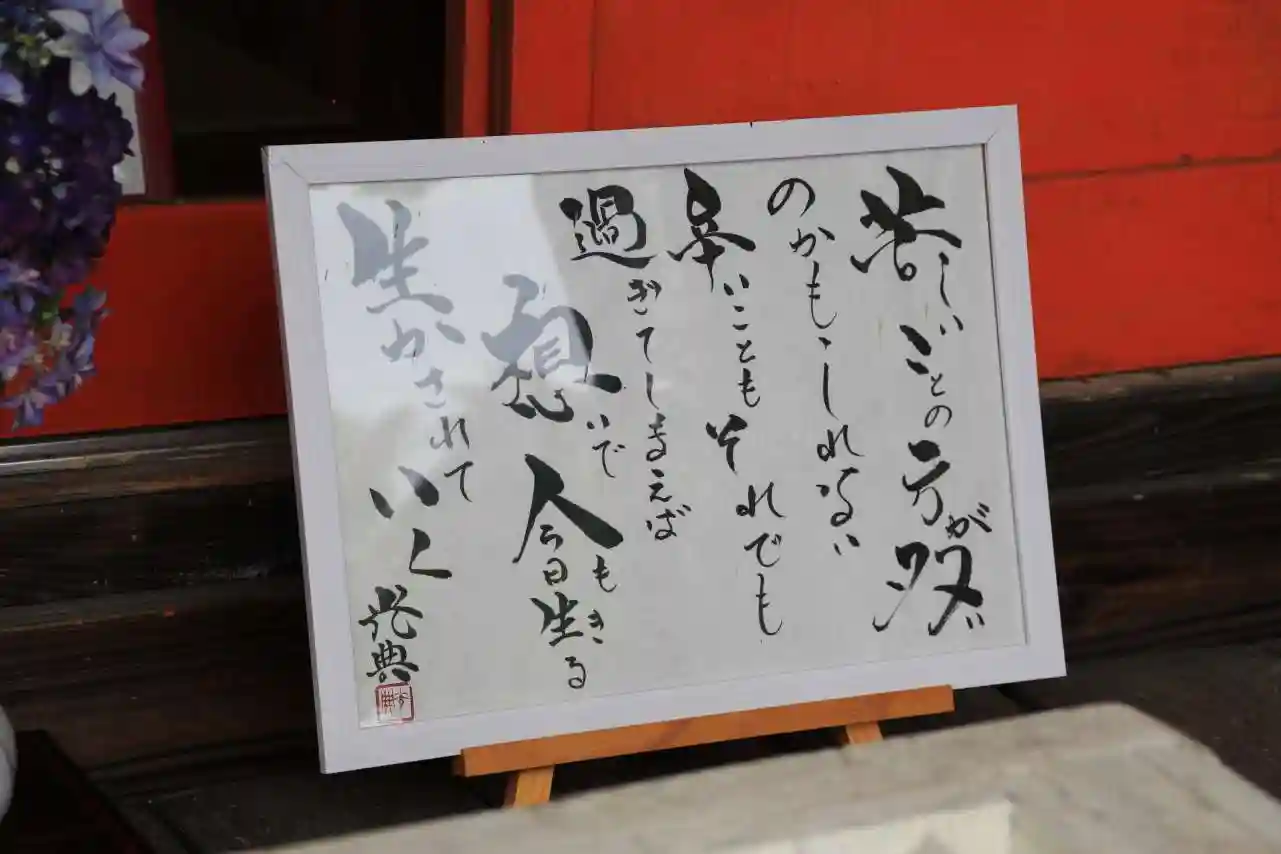 苦しいことの方が多い
のかもしれない
辛いこともそれでも
過ぎてしまえば
想いで今日も生きる
生かされていく
典